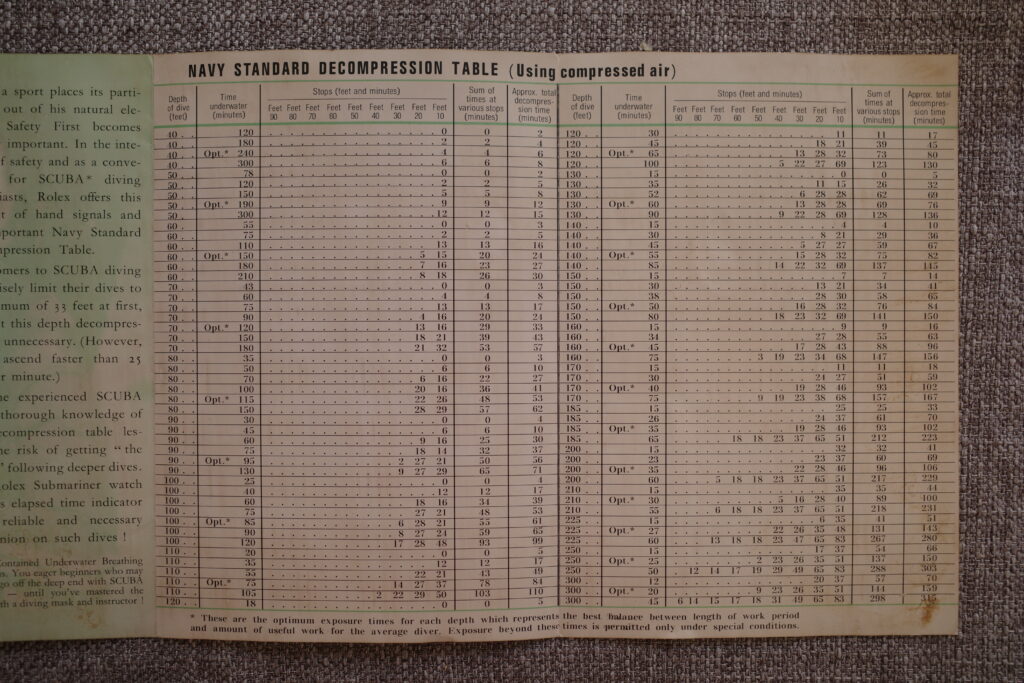 a sport places its parti-
out of his natural ele-
Safety First becomes
important. In the inte-
f safety and as a conve-
for SCUBA* diving
iasts, Rolex offers this
t of hand signals and
portant Navy Standard
pression Table.
omers to SCUBA diving
isely limit their dives to
mum of 33 feet at first,
t this depth decompres-
unnecessary. (However,
ascend faster than 25
r minute.)
he experienced SCUBA
thorough knowledge of
ecompression table les-
he risk of getting "the
' following deeper dives.
Rolex Submariner watch
s elapsed time indicator
reliable and necessary
nion on such dives !
Contained Underwater Breathing
s. You eager beginners who may
go off the deep end with SCUBA
— until you've mastered the
th a diving mask and instructor !
NAVY STANDARD DECOMPRESSION TABLE (Using compressed air)
Depth of dive (feet) Time underwater (minutes) Stops (feet and minutes) Sum of times at various stops (minutes) Approx. total decompres-sion time (minutes)
Feet 90 Feet 80 Feet 70 Feet 60 Feet 50 Feet 40 Feet 30 Feet 20 Feet 10
40 120 0 0 2
40 180 2 2 4
40 Opt.* 240 4 4 6
40 300 6 6 8
50 78 0 0 2
50 120 2 2 5
50 150 5 5 8
50 Opt.* 190 9 9 12
50 300 12 12 15
60 55 0 0 3
60 75 2 2 5
60 110 13 13 16
60 Opt.* 150 5 15 20 24
60 180 7 16 23 27
60 210 8 18 26 30
70 43 0 0 3
70 60 4 4 8
70 75 13 13 17
70 90 4 16 20 24
70 Opt.* 120 13 16 29 33
70 150 18 21 39 43
70 180 21 32 53 57
80 35 0 0 3
80 50 6 6 10
80 70 6 16 22 27
80 100 20 16 36 41
80 Opt.* 115 22 26 48 53
80 150 28 29 57 62
90 30 0 0 4
90 45 6 6 10
90 60 9 16 25 30
90 75 18 14 32 37
90 Opt.* 95 2 27 21 50 56
90 130 9 27 29 65 71
100 25 0 0 4
100 40 12 12 17
100 60 18 16 34 39
100 75 27 21 48 53
100 Opt.* 85 6 28 21 55 61
100 90 8 27 24 59 65
100 120 17 28 48 93 99
110 20 0 0 5
110 35 12 12 17
110 55 22 21 43 49
110 Opt.* 75 14 27 37 78 84
110 105 2 22 29 50 103 110
120 18 0 0 5
Depth of dive (feet) Time underwater (minutes) Stops (feet and minutes) Sum of times at various stops (minutes) Approx. total decompres-sion time (minutes)
Feet 90 Feet 80 Feet 70 Feet 60 Feet 50 Feet 40 Feet 30 Feet 20 Feet 10
120 30 11 11 17
120 45 18 21 39 45
120 Opt.* 65 13 28 32 73 80
120 100 5 22 27 69 123 130
130 15 0 0 5
130 35 11 15 26 32
130 52 6 28 28 62 69
130 Opt.* 60 13 28 28 69 76
130 90 9 22 28 69 128 136
140 15 4 4 10
140 30 8 21 29 36
140 45 5 27 27 59 67
140 Opt.* 55 15 28 32 75 82
140 85 14 22 32 69 137 145
150 15 7 7 14
150 30 13 21 34 41
150 38 28 30 58 65
150 Opt.* 50 16 28 32 76 84
150 80 18 23 32 69 141 150
160 15 9 9 16
160 34 27 28 55 63
160 Opt.* 45 17 28 43 88 96
160 75 3 19 23 34 68 147 156
170 15 11 11 18
170 30 24 27 51 59
170 Opt.* 40 19 28 46 93 102
170 75 9 19 23 38 68 157 167
185 15 25 25 33
185 26 24 37 61 70
185 Opt.* 35 19 28 46 93 102
185 65 18 18 23 37 65 51 212 223
200 15 32 32 41
200 23 23 37 60 69
200 Opt.* 35 22 28 46 96 106
200 60 5 18 18 23 37 65 51 217 229
210 15 35 35 44
210 Opt.* 30 5 16 28 40 89 100
210 55 6 18 18 23 37 65 51 218 231
225 15 6 35 41 51
225 Opt.* 27 22 26 35 48 131 143
225 60 13 18 18 23 47 65 83 267 280
250 15 17 37 54 66
250 Opt.* 25 2 23 26 35 51 137 150
250 50 12 14 17 19 29 49 65 83 288 303
300 12 20 37 57 70
300 Opt.* 20 9 23 26 35 51 144 159
300 45 6 14 15 17 18 31 49 65 83 298 315
* These are the optimum exposure times for each depth which represents the best balance between length of work period
and amount of useful work for the average diver. Exposure beyond these times is permitted only under special conditions.